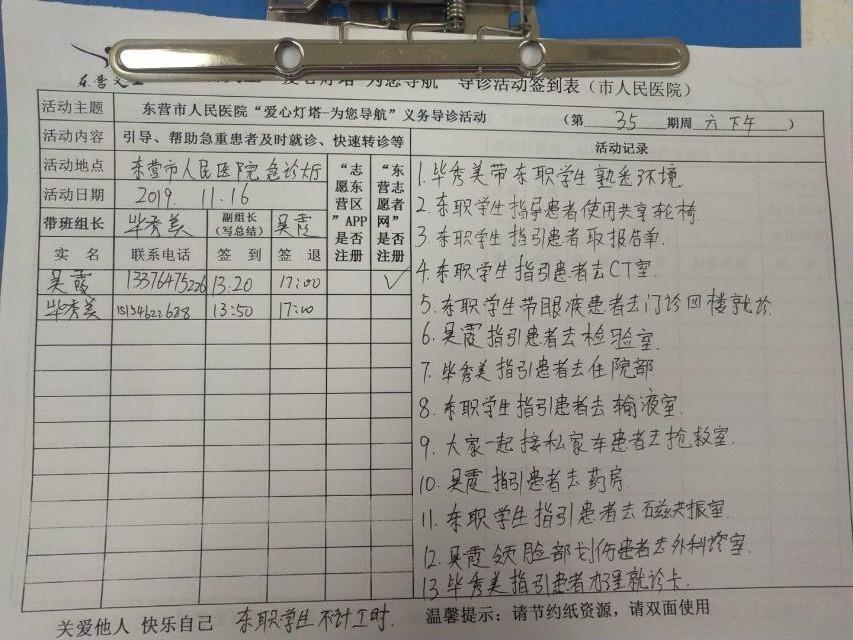 为您导航 导诊活动签到表（市人民医院）
活动主题 东营市人民医院“爱心灯塔-为您导航”义务导诊活动 （第 35 期周 六下午 ）
活动内容 引导、帮助急重患者及时就诊、快速转诊等 活动记录
活动地点 东营市人民医院急诊大厅
活动日期 2019. 11.16
带班组长 毕秀美 副组长（写总结） 吴霞
“志愿东营区”APP是否注册
“东营志愿者网”是否注册
实名 联系电话 签到 签退
吴霞 13376475226 13.20 17:00 ✓
毕秀美 15154622638 13:50 17:00
1.毕秀美带东职学生熟悉环境
2.东职学生指导患者使用共享轮椅
3.东职学生指引患者取报告单.
4.东职学生指引患者去CT室.
5.东职学生带眼液患者去门诊四楼就诊.
6.吴霞指引患者去检验室.
7.毕秀美指引患者去住院部
8.东职学生指引患者去输液室.
9.大家一起接私家车患者去抢救室.
10.吴霞指引患者去药房.
11.东职学生指引患者去磁共振室.
12.吴霞领脸部划伤患者去外科诊室.
13毕秀美指引患者办理就诊卡
关爱他人 快乐自己 东职学生不计工时. 温馨提示：请节约纸资源，请双面使用